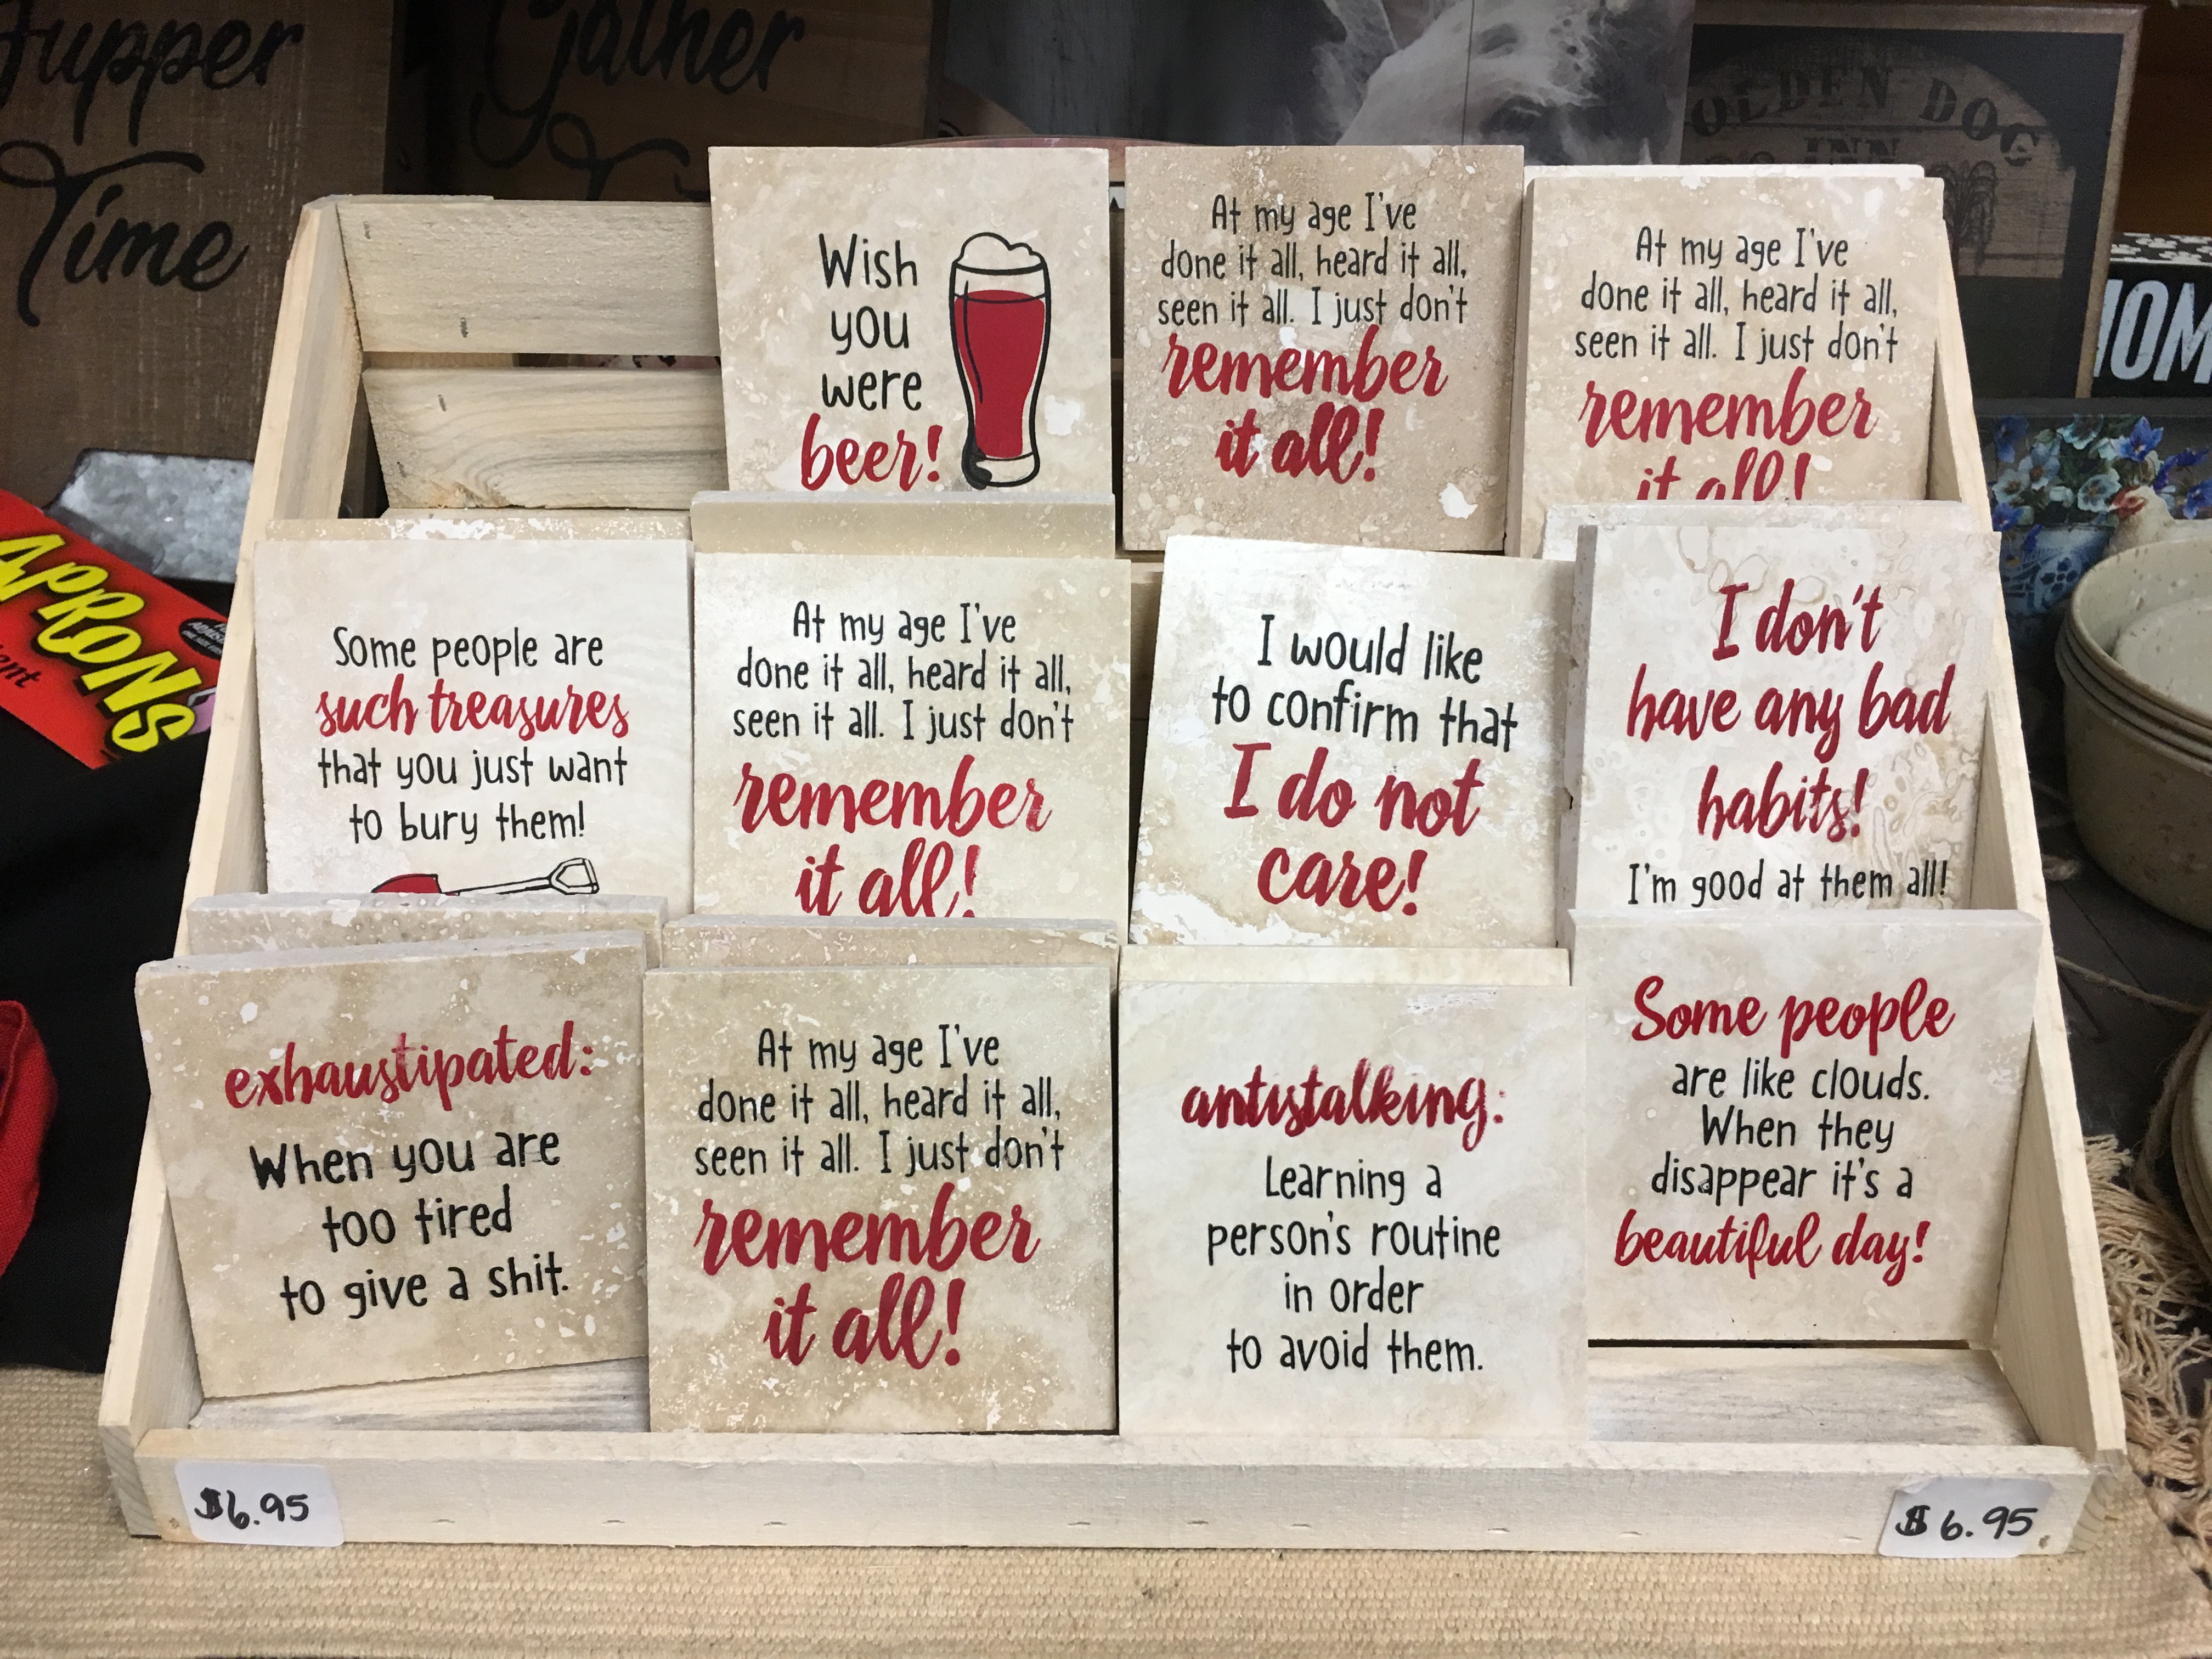 Supper
Time
Gather
OLDEN DOG
INN
HOM
APRONS
Wish
you
were
beer!
At my age I've
done it all, heard it all,
seen it all. I just don't
remember
it all!
At my age I've
done it all, heard it all,
seen it all. I just don't
remember
it all!
Some people are
such treasures
that you just want
to bury them!
At my age I've
done it all, heard it all,
seen it all. I just don't
remember
it all!
I would like
to confirm that
I do not
care!
I don't
have any bad
habits!
I'm good at them all!
exhaustipated:
When you are
too tired
to give a shit.
At my age I've
done it all, heard it all,
seen it all. I just don't
remember
it all!
antistalking:
Learning a
person's routine
in order
to avoid them.
Some people
are like clouds.
When they
disappear it's a
beautiful day!
$6.95
$6.95